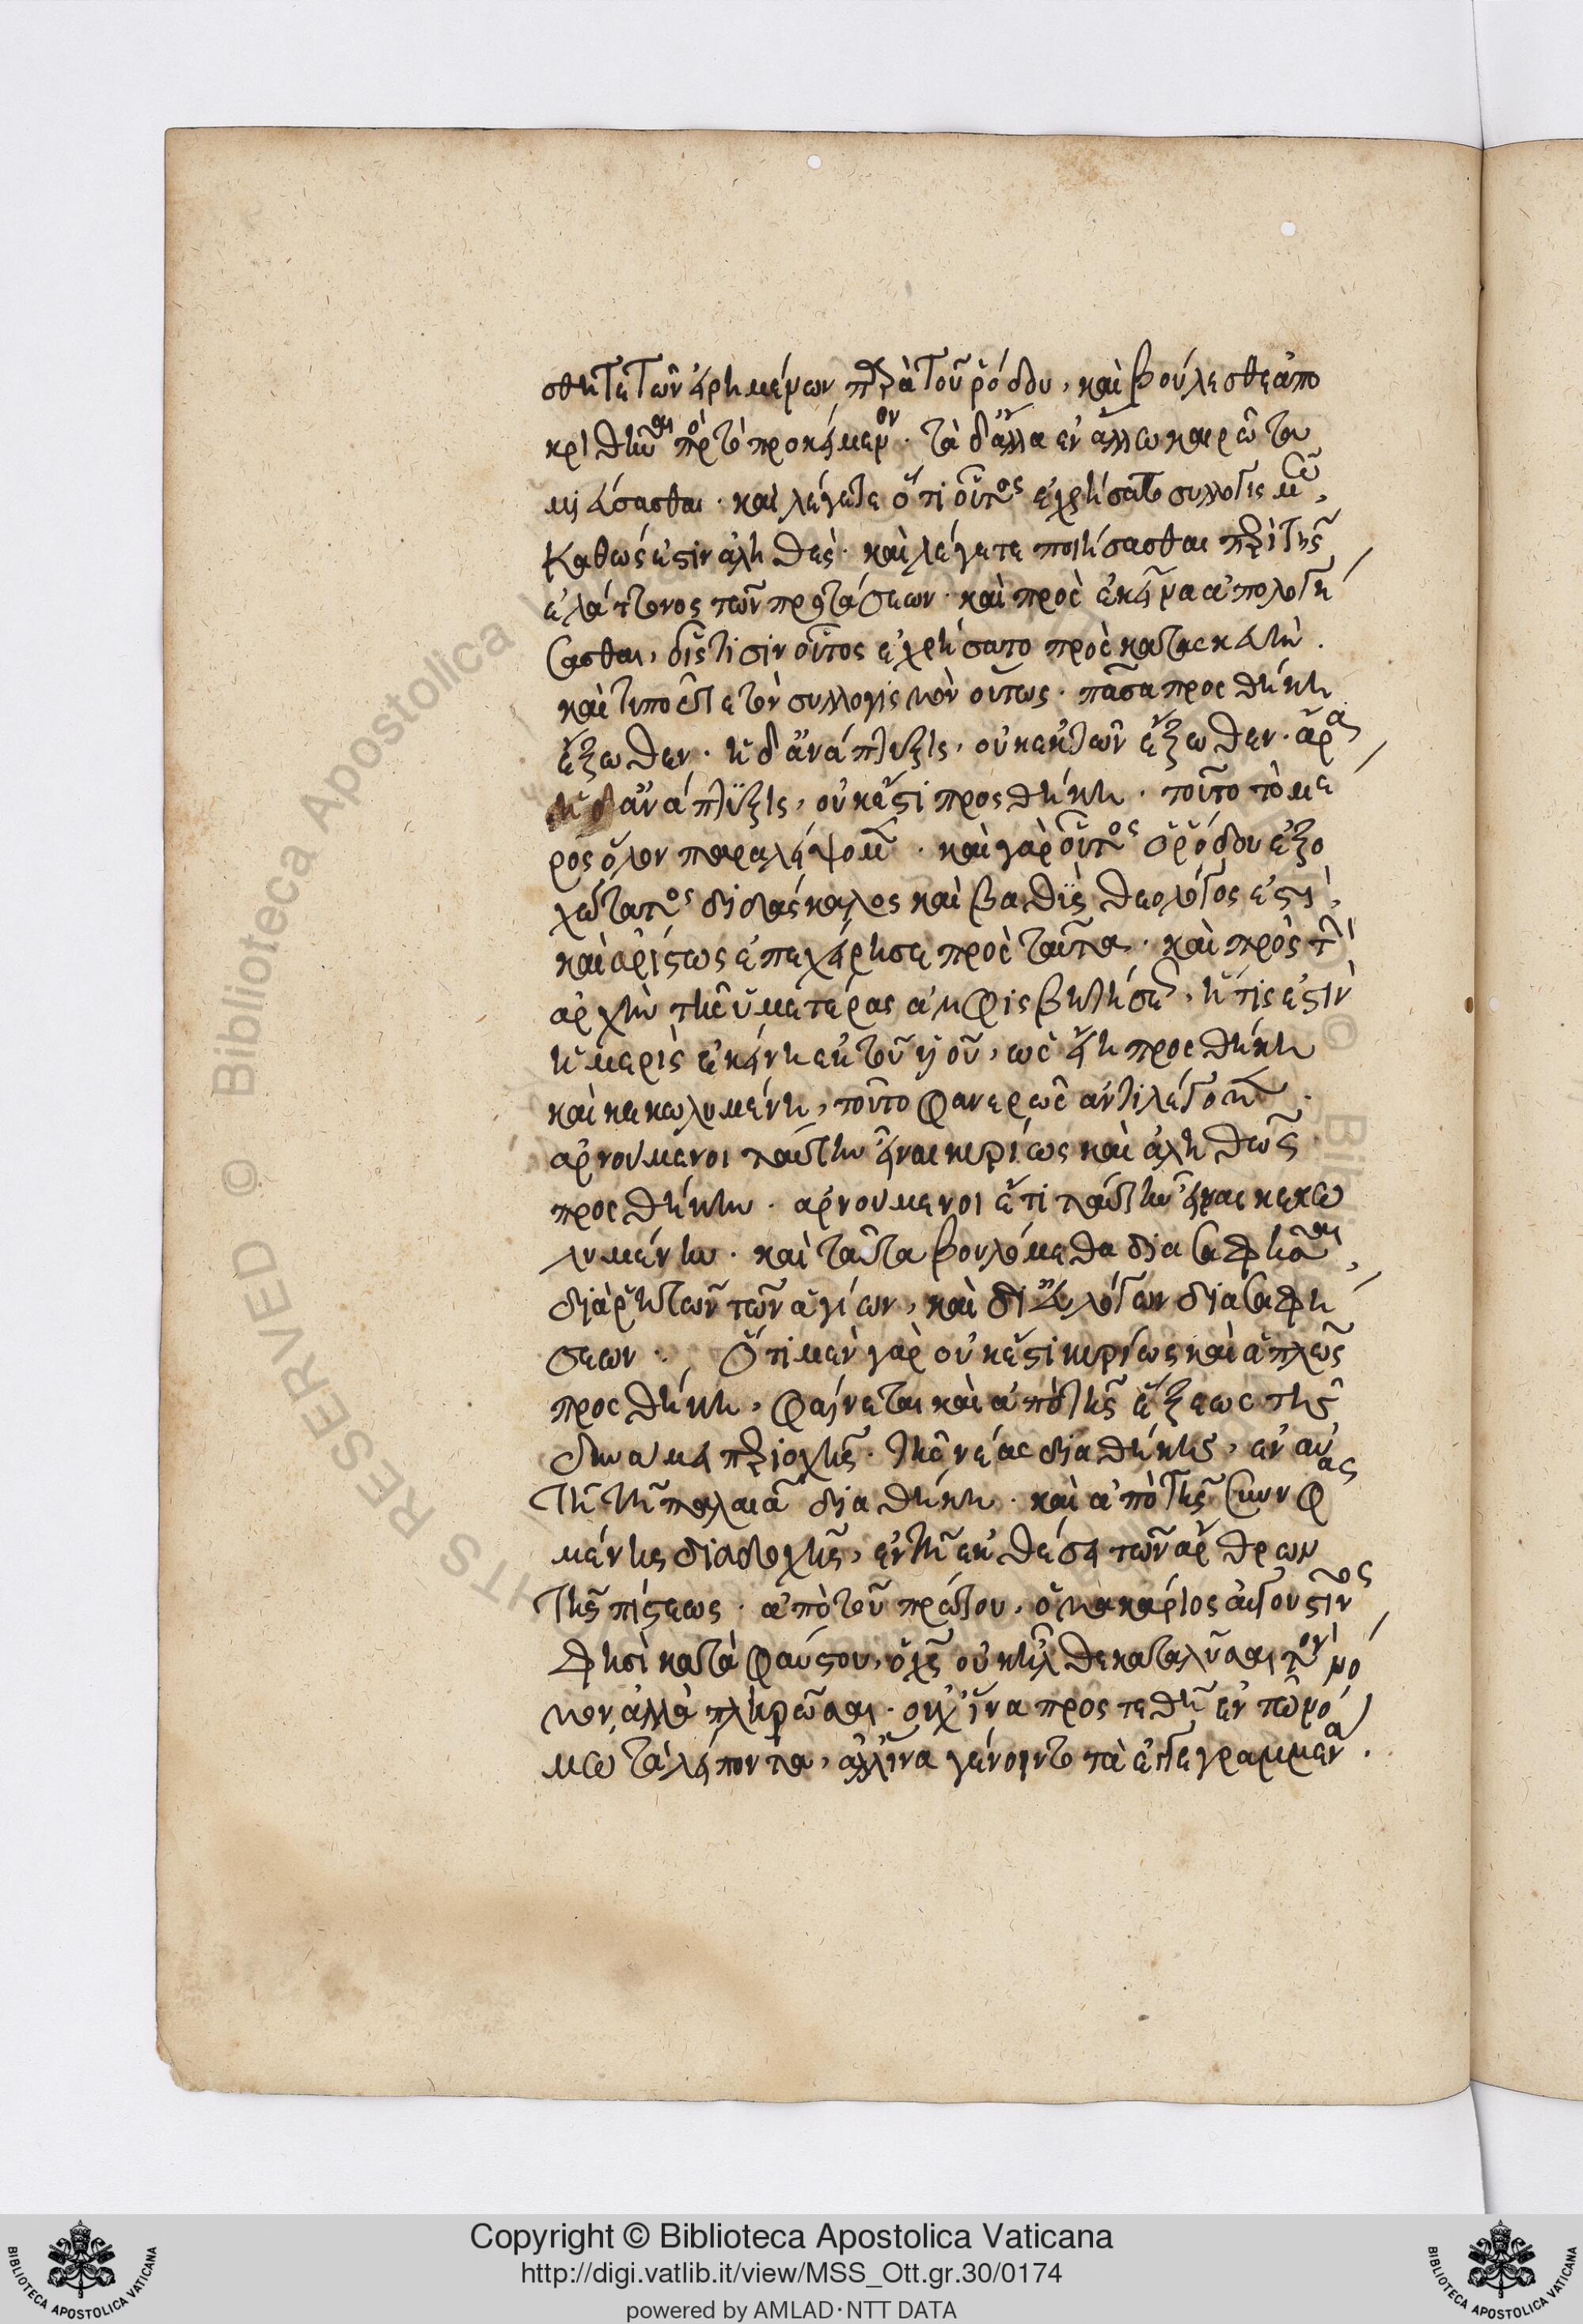 σθητε τῶν εἰρημένων παρὰ τοῦ ῥόδου, καὶ βούλεσθε ἀπο
κριθῆναι πρὸς τὸ προκείμενον. τὰ δ' ἄλλα ἐν ἄλλω καιρῶ τα
μιεύσασθαι. καὶ λέγετε ὅτι οὗτος ἐχρήσατο συλλογισμῶ,
καθώς ἐστιν ἀληθές. καὶ λέγετε ποιήσασθαι περὶ τῆς
ἐλάττονος τῶν προτάσεων. καὶ πρὸς ἐκεῖνα ἀπολογή
σασθαι, οἷς τισιν οὗτος ἐχρήσατο πρὸς κατασκευήν.
καὶ τυποῦτε τὸν συλλογισμὸν οὕτως. πᾶσα προσθήκη
ἔξωθεν. ἡ δ' ἀνάπτυξις, οὐκ ἐκ τῶν ἔξωθεν. ἄρα
ἡ δ' ἀνάπτυξις, οὐκ ἔστι προσθήκη. τοῦτο τὸ μέ
ρος ὅλον παραλείψομεν. καὶ γὰρ οὗτος ὁ ῥόδου ἐξο
χώτατος διδάσκαλος καὶ βαθὺς θεολόγος ἐστί,
καὶ ἀρίστως ἐπεχείρησε πρὸς ταῦτα. καὶ πρὸς τὴν
ἀρχὴν τῆς ὑμετέρας ἀμφισβητήσεως, ἥτις ἐστὶν
ἡ μερὶς ἐκείνη ἐκ τοῦ υἱοῦ, ὡς εἴη προσθήκη
καὶ κεκωλυμένη, τοῦτο φανερῶς ἀντιλέγομεν.
ἀρνούμενοι ταύτην εἶναι κυρίως καὶ ἀληθῶς
προσθήκην. ἀρνούμενοι ἔτι ταύτην εἶναι κεκω
λυμένην. καὶ ταῦτα βουλόμεθα διασαφῆσαι,
διὰ ῥητῶν τῶν ἁγίων, καὶ δι' εὐλόγων διασαφή
σεων. Ὅτι μὲν γὰρ οὐκ ἔστι κυρίως καὶ ἁπλῶς
προσθήκη, φαίνεται καὶ ἀπὸ τῆς ἕξεως τῆς
δυνάμει περιοχῆς. τῆς νέας διαθήκης, ἐν αὐ
τῆ τῆ παλαιᾶ διαθήκη. καὶ ἀπὸ τῆς
μένης διαδοχῆς, ἐν τῆ ἐκθέσει τῶν ἄρθρων
τῆς πίστεως. ἀπὸ τοῦ πρώτου, ὁ μακάριος αὐγουστῖνος
φησὶ κατὰ φαύστου, ὁ χριστὸς οὐκ ἦλθε καταλῦσαι τὸν νό
μον, ἀλλὰ πληρῶσαι. οὐχ ἵνα προστεθῆ ἐν τῶ νό
μω τὰ λείποντα, ἀλλ' ἵνα γένοιντο τὰ ἐγγεγραμμένα.
Copyright © Biblioteca Apostolica Vaticana
http://digi.vatlib.it/view/MSS_Ott.gr.30/0174
powered by AMLAD·NTT DATA